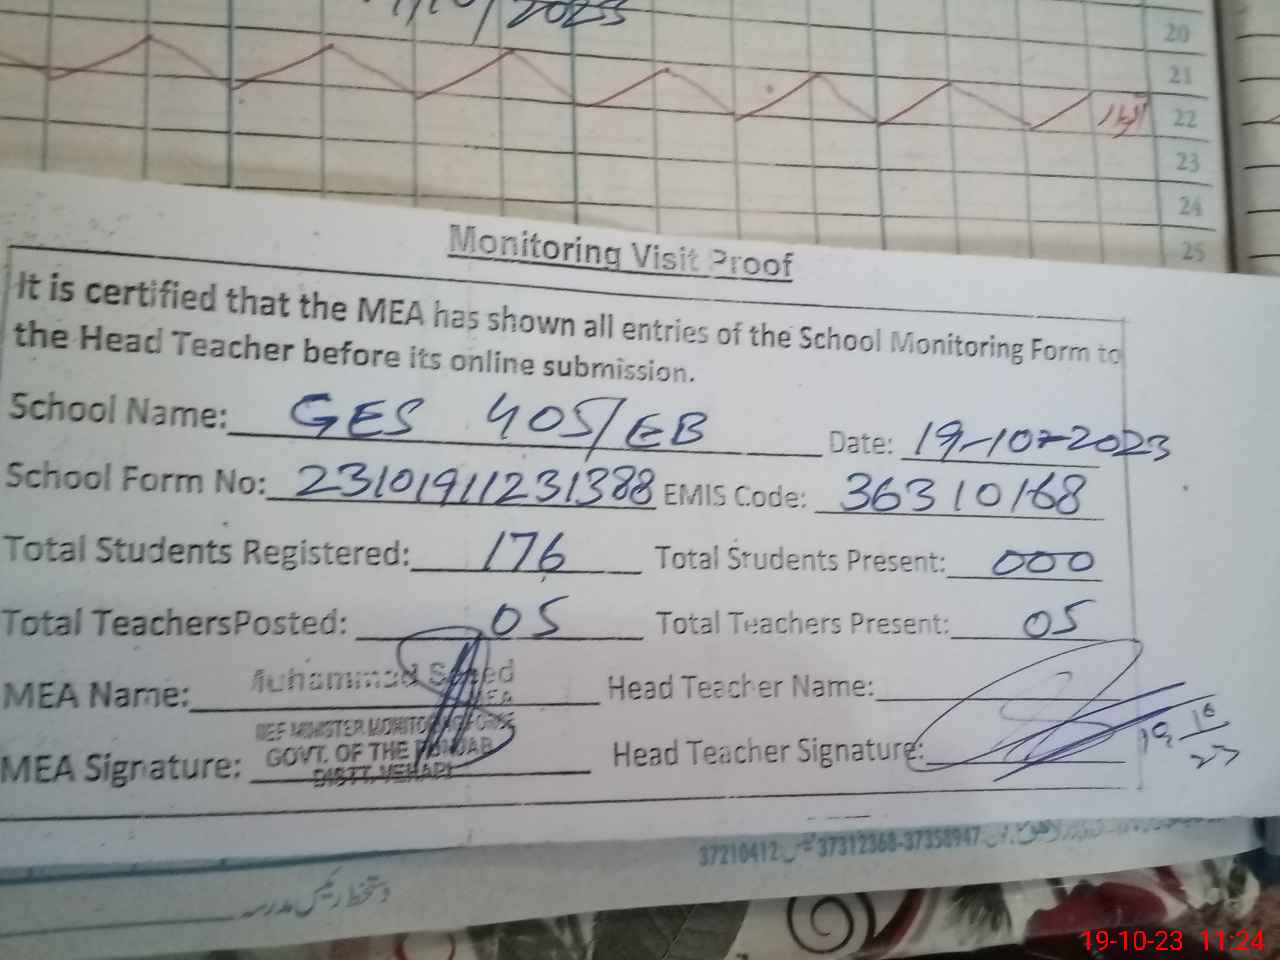 /10/2023
20
21
22
23
24
25
Monitoring Visit Proof
It is certified that the MEA has shown all entries of the School Monitoring Form to
the Head Teacher before its online submission.
School Name: GES 405/EB Date: 19-10-2023
School Form No: 23101911231388 EMIS Code: 36310168
Total Students Registered: 176 Total Students Present: 000
Total TeachersPosted: 05 Total Teachers Present: 05
MEA Name: Muhammad Saeed Head Teacher Name:
MEA
CHIEF MINISTER MONITORING FORCE
MEA Signature: GOVT. OF THE PUNJAB Head Teacher Signature: 19/10/23
DISTT. VEHARI
37210412 37312368-37358947
دستخط رئیس مدرسہ
19-10-23 11:24